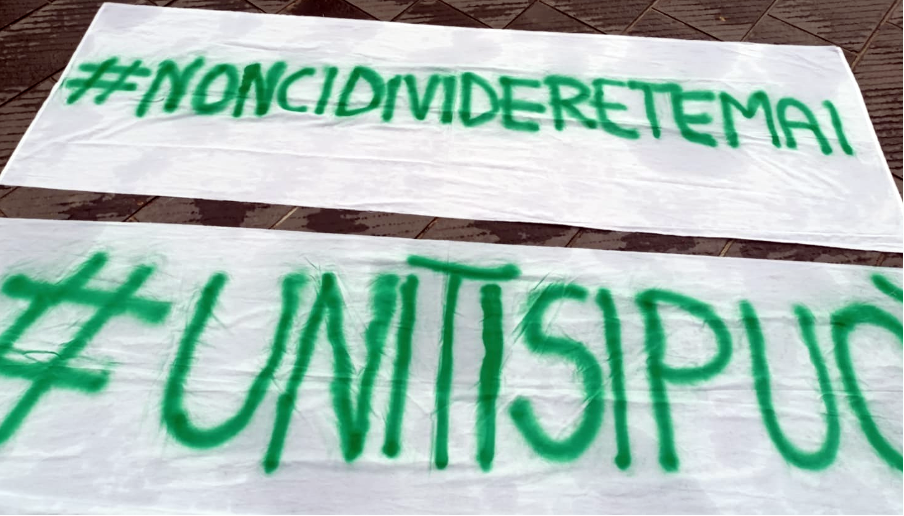 #NONCIDIVIDERETEMAI
#UNITISIPUÒ